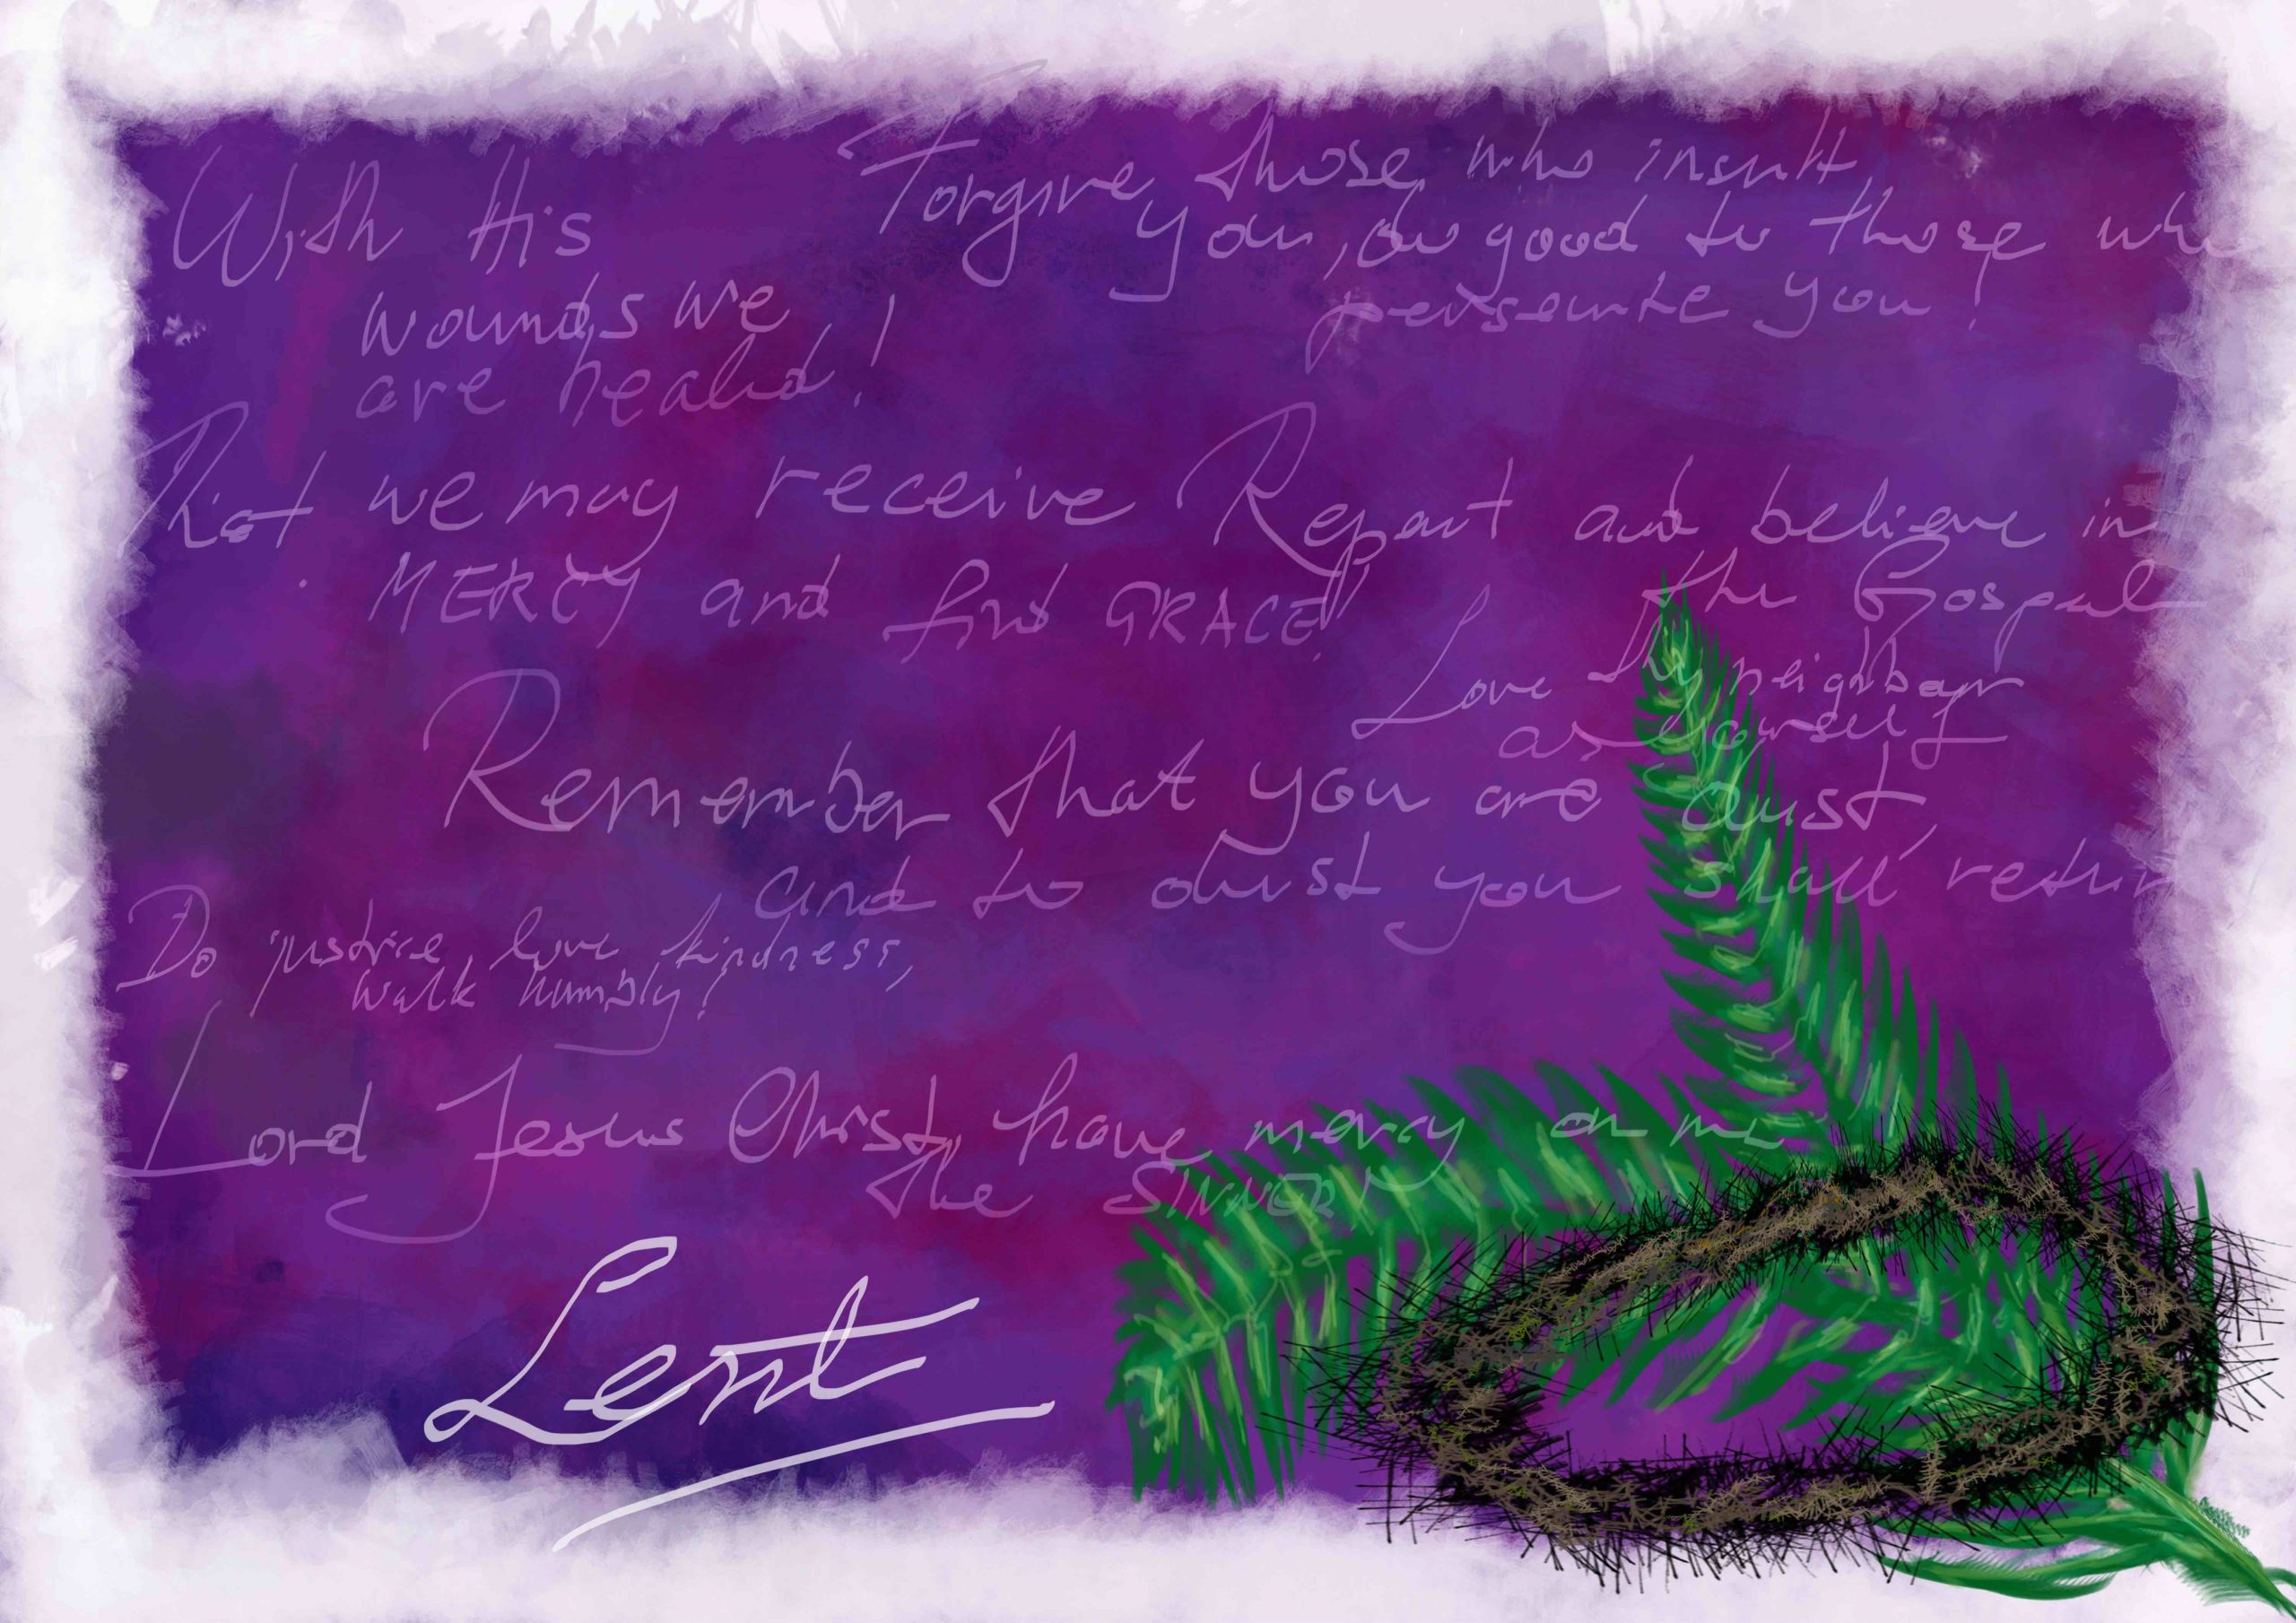 With His
wounds we
are healed!
Forgive those who insult
you, do good to those who
persecute you!
That we may receive
MERCY and find GRACE!
Repent and believe in
the Gospel
Love thy neighbour
as yourself
Remember that you are dust,
and to dust you shall return
Do justice, love kindness,
walk humbly!
Lord Jesus Christ, have mercy on me
the SINNER
Lent